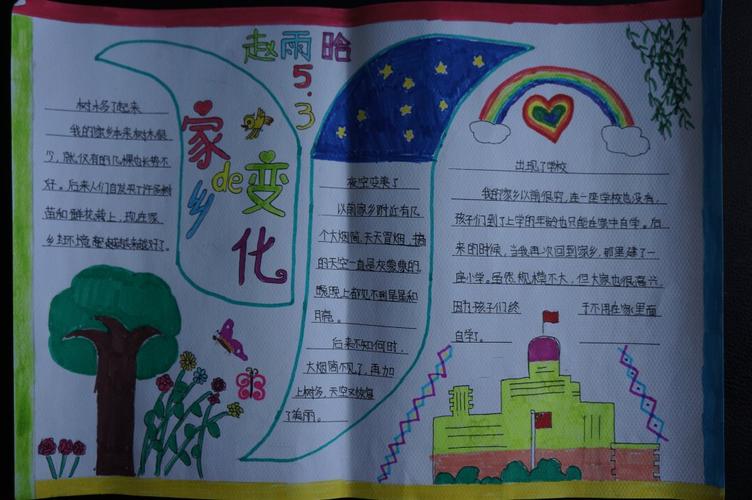 赵雨晗
5.3
家乡de变化
树木多了起来
我的家乡本来树木很
少，就仅有的几棵也长势不
好。后来人们自发买了许多树
苗和鲜花栽上，现在家
乡环境越来越好了。
夜空变美了
以前家乡附近有几
个大烟筒，天天冒烟，搞
的天空一直是灰蒙蒙的
晚上都见不到星星和
月亮。
后来不知何时，
大烟筒不见了，再加
上树多，天空又恢复
了美丽。
出现了学校
我的家乡以前很穷，连一座学校也没有，
孩子们到了上学的年龄也只能在家中自学。后
来的时候，当我再次回到家乡，那里建了一
座小学。虽然规模不大，但大家也很高兴，
因为孩子们终于不用在家里面
自学了。